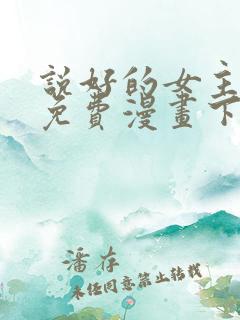 說好的女主
免費漫畫下
潘存
未經同意禁止转载